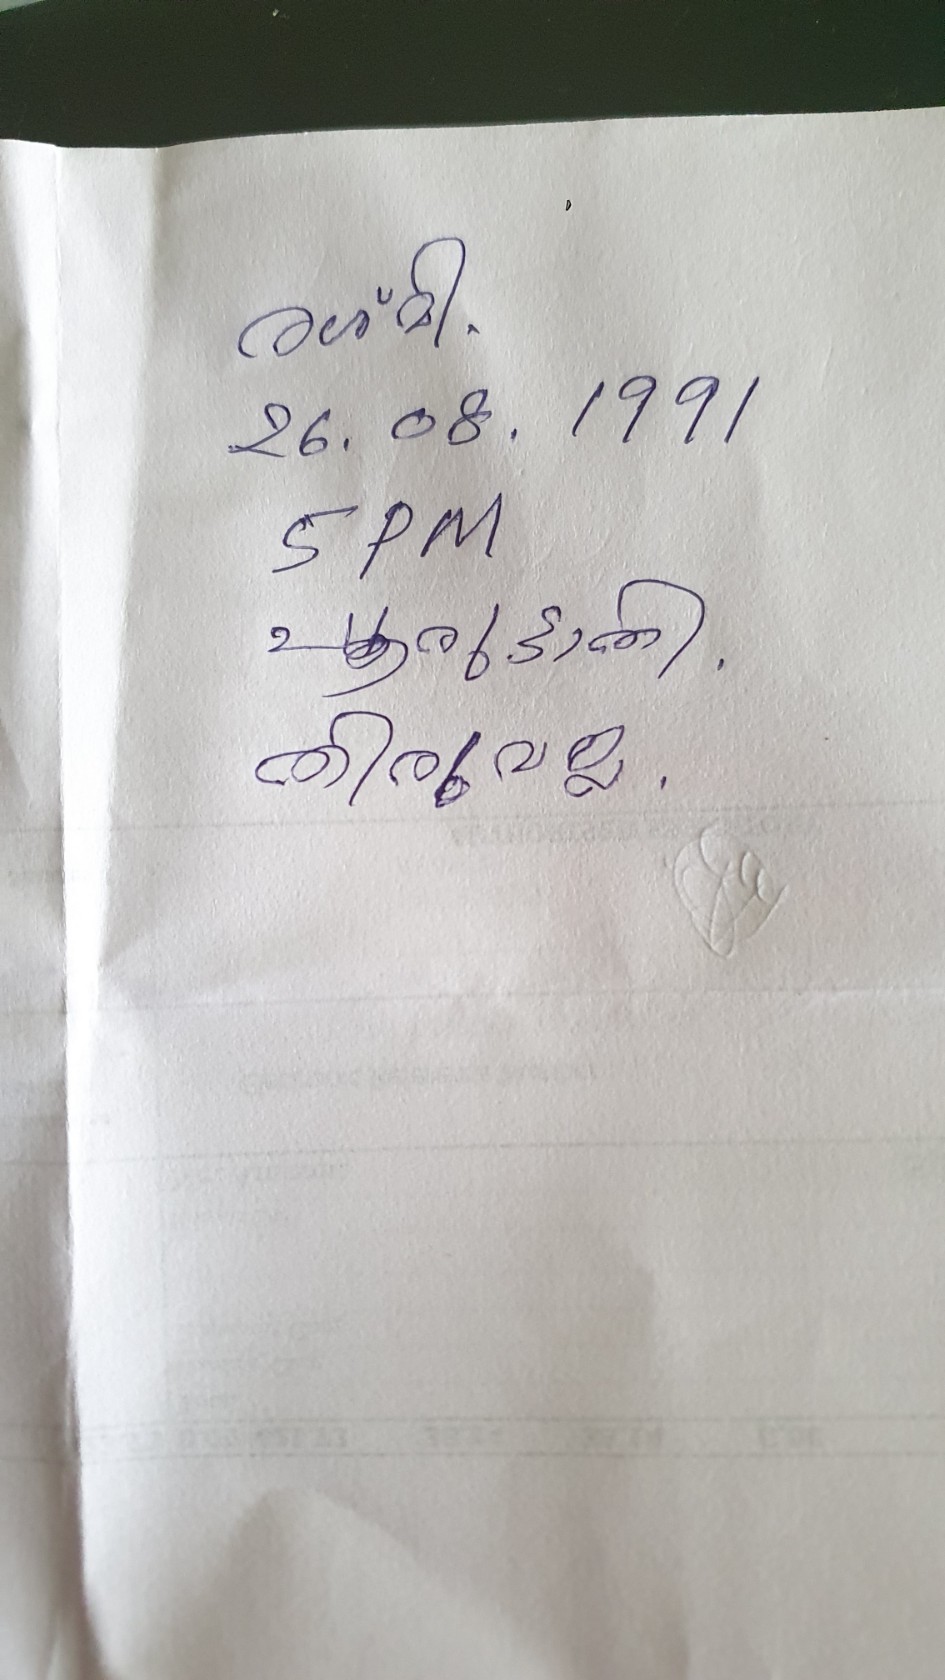 രശ്മി.
26. 08. 1991
5 PM
പൂരുട്ടാതി.
തിരുവല്ല.